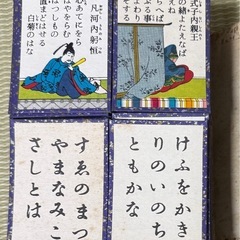 式子内親王
の緒よたえなば
えね
らへば
ぶる事の
よわり
する
凡河内躬恒
心あてに
をらばやをらむ
はつしもの
置まどはせる
白菊のはな
けふをかき
りのいのち
ともかな
すゑのまつ
やまなみこ
さしとは